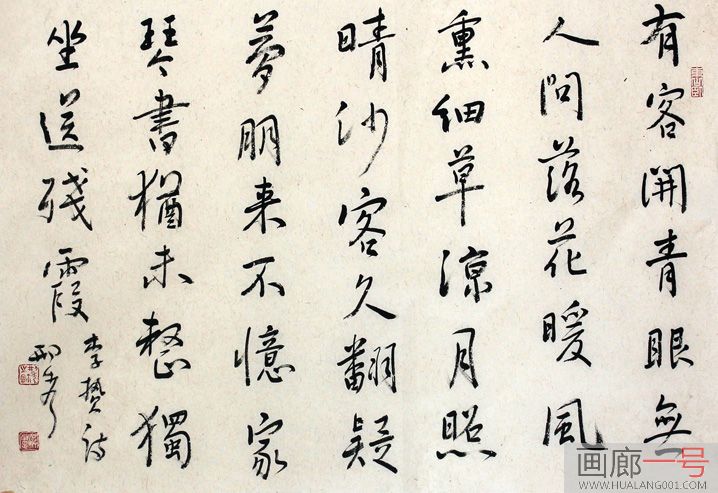 有客開青眼無
人問落花暖風
熏細草涼月照
晴沙客久翻疑
夢朋來不憶家
琴書猶未整獨
坐送殘霞
李贄詩
画廊一号
WWW.HUALANG001.COM